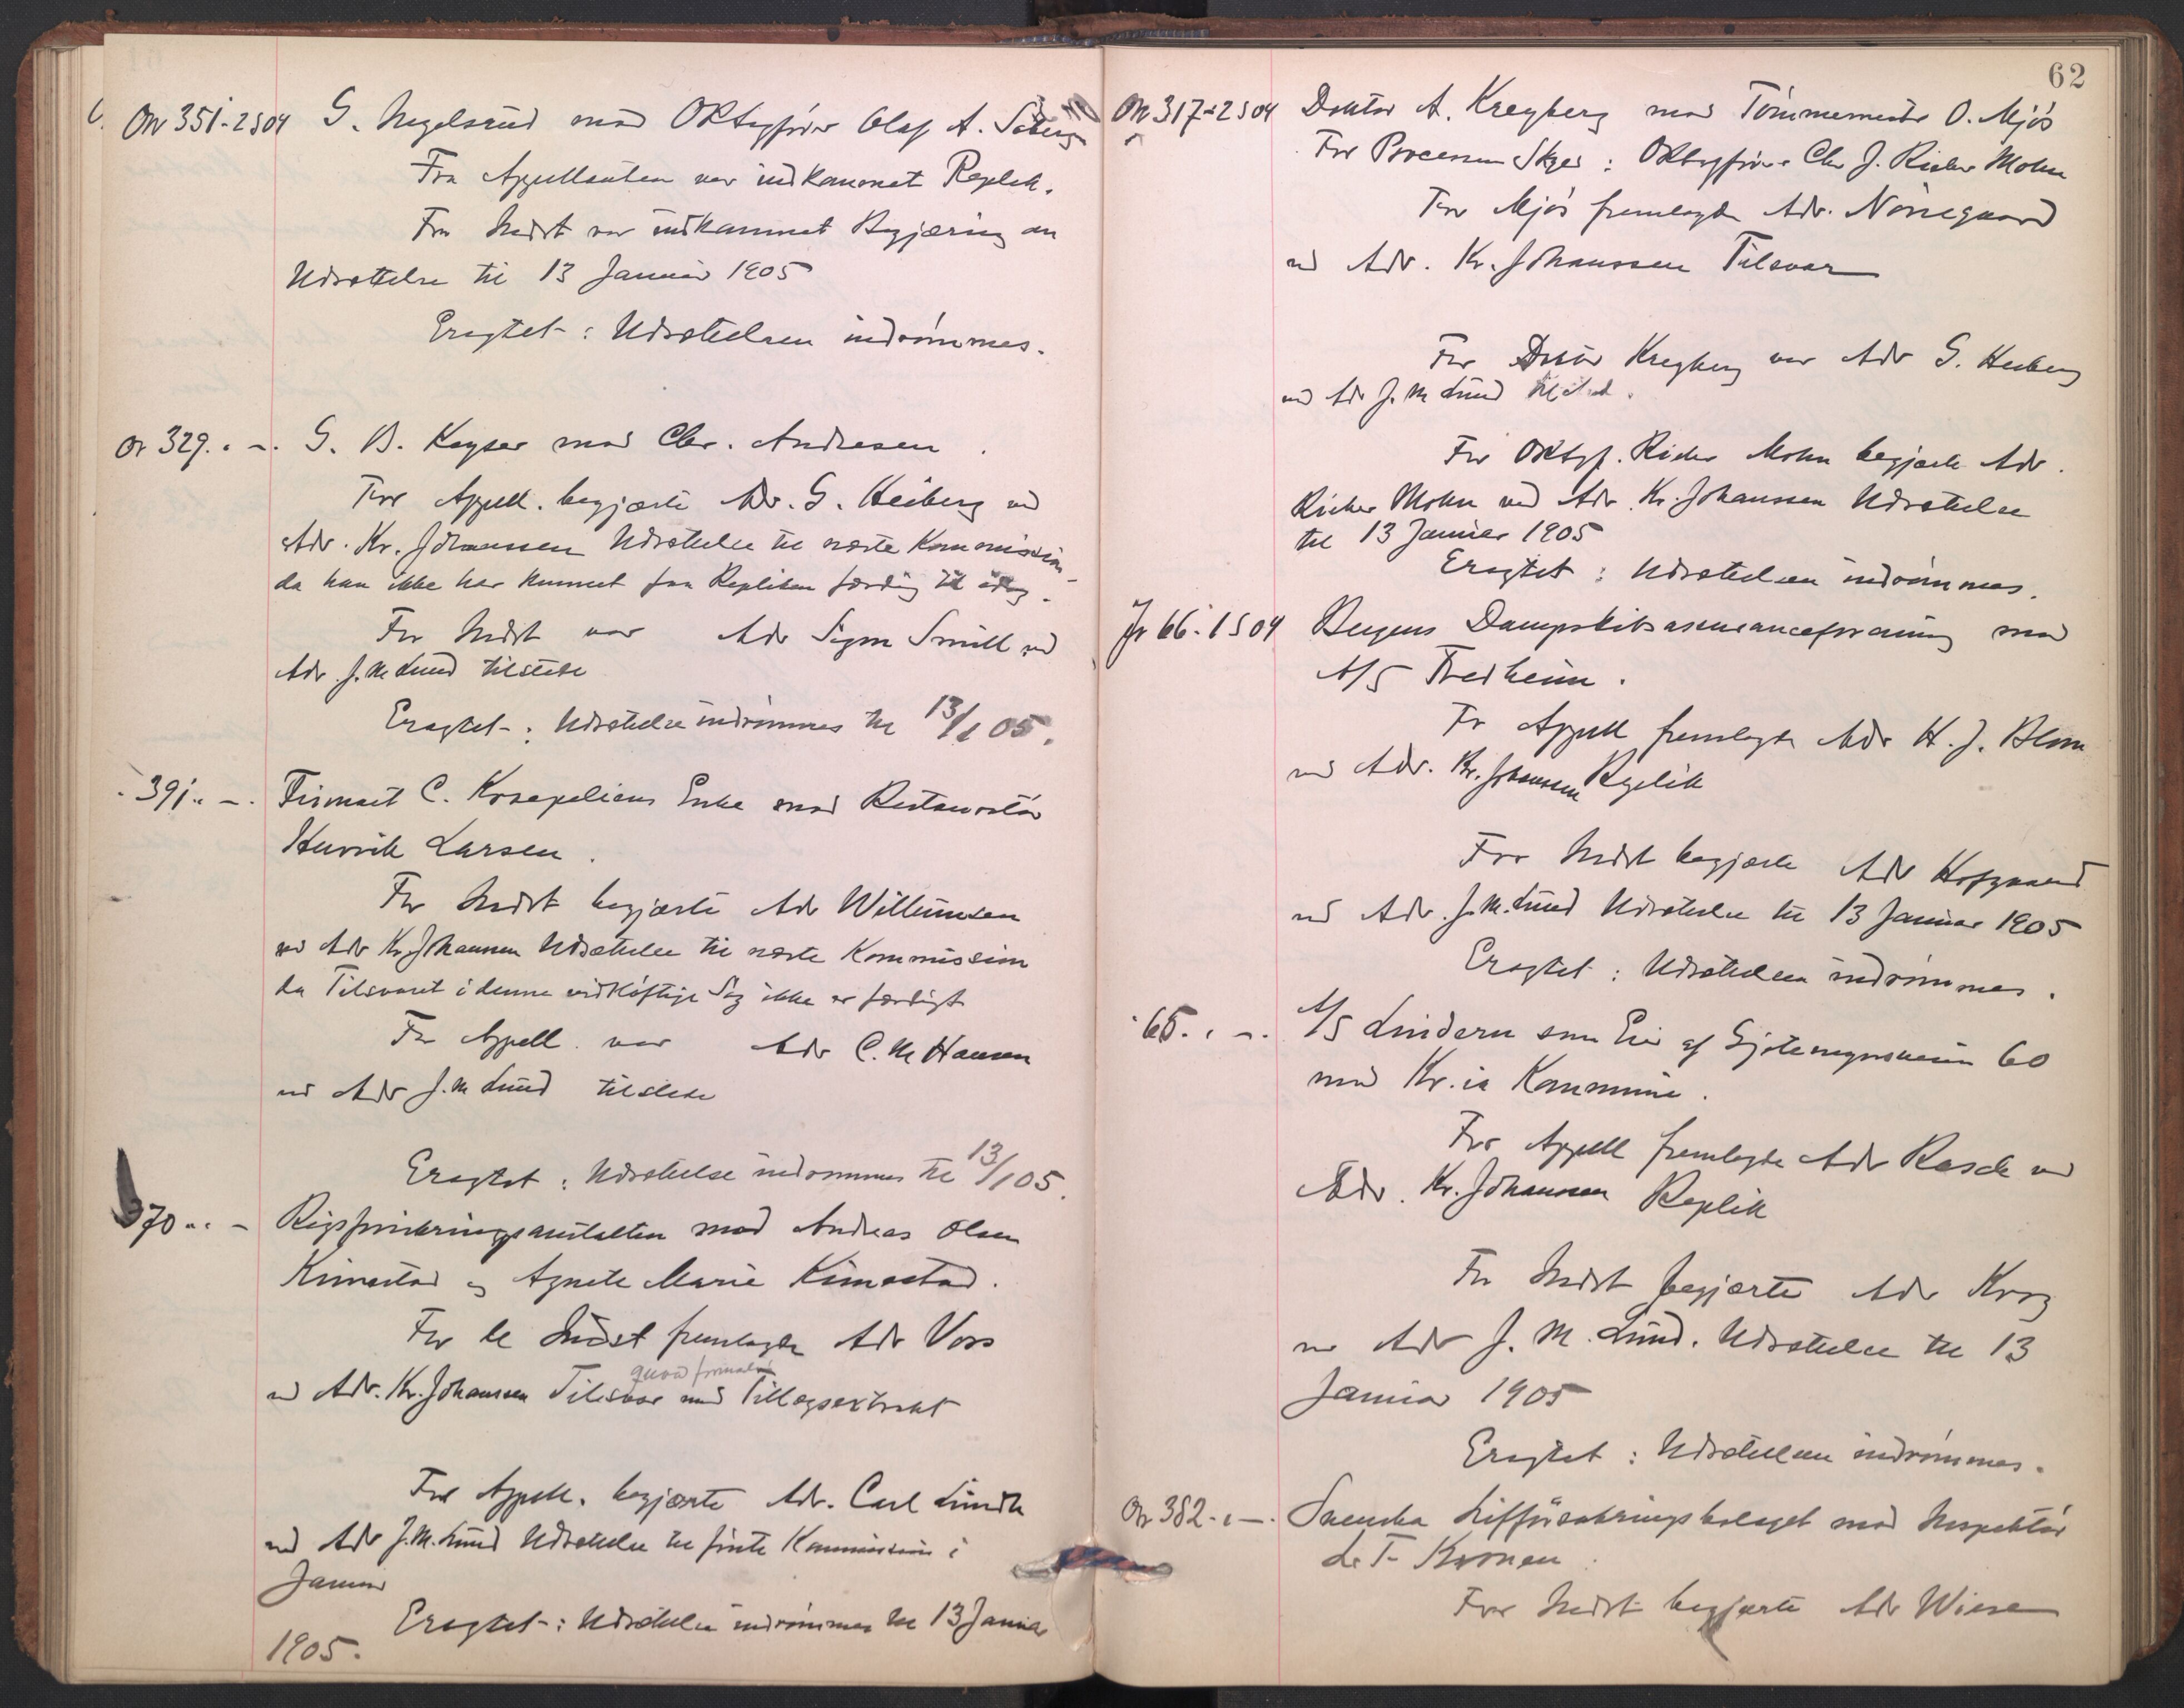 Or 351-2S04 G. Negelsrud mod ORSagfører Olaf A. Solberg
Fra Appellanten var indkommet Replik.
Fra Indst var indkommet Begjæring om
Udsættelse til 13 Januar 1905
Eragtet: Udsættelsen indrømmes.
Or 329. „ –. G. B. Keyser mod Chr. Andresen.
For Appell. begjærte Adv. G. Heiberg ved
Adv. Kr. Johanssen Udsættelse til næste Kommission
da han ikke har kunnet faa Repliken færdig til idag.
For Indst var Adv Sigm Smith ved
Adv. J. M Lund tilstede
Eragtet: Udsættelse indrømmes til 13/1 05.
391. „ –. Firmaet C. Enke mod Restauratør
Henrik Larsen.
For Indst begjærte Adv Willumsen
ved Adv Kr. Johannsen Udsættelse til næste Kommission
da Tilsvaret i denne vidløftige Sag ikke er færdigt
For Appell. var Adv C. M Hansen
ved Adv J. M Lund tilstede
Eragtet: Udsættelse indrømmes til 13/1 05.
370 „ „ – Rigsforsikringsanstalten mod Andreas Olsen
Kimestad og Agnete Marie Kimestad.
For de Indst fremlagde Adv Voss
quoad formalia
ved Adv. Kr. Johanssen Tilsvar med Tillægsextrakt
For Appell. begjærte Adv. Carl Lundh
ved Adv J. M. Lund Udsættelse til første Kommission i
Januar
Eragtet: Udsættelse indrømmes til 13 Januar
1905.
62
Or 317-2S04 Doktor A. Kreyberg mod Tømmermester O. Mjøs
For Processen Skyld: ORSagfører Chr J. Richer Mohn
For Mjøs fremlagde Adv. Nørregaard
ved Adv. Kr. Johanssen Tilsvar
For Doktor Kreyberg var Adv G. Heiberg
ved Adv J. M Lund tilstede.
For ORSagf. Richer Mohn begjærte Adv.
Richer Mohn ved Adv. Kr. Johanssen Udsættelse
til 13 Januar 1905
Eragtet: Udsættelsen indrømmes.
Jr 66-1S04 Bergens Dampskibsassuranceforening mod
A/S Fredheim.
For Appell fremlagde Adv H. J. Blom
ved Adv. Kr. Johanssen Replik
For Indst begjærte Adv Hofgaard
ved Adv. J. M. Lund Udsættelse til 13 Januar 1905
Eragtet: Udsættelsen indrømmes.
65. „ –. A/S Lindern som Eier af 60
mod Kr.ia Kommune.
For Appell fremlagde Adv Rasch ved
Adv. Kr. Johanssen Replik
For Indst begjærte Adv Krog
ved Adv J. M. Lund. Udsættelse til 13
Januar 1905
Eragtet: Udsættelsen indrømmes.
Or 382. „ –. Svenska Lifförsäkringsbolaget mod Inspektør
L. T. Kronen.
For Indst begjærte Adv Wiese